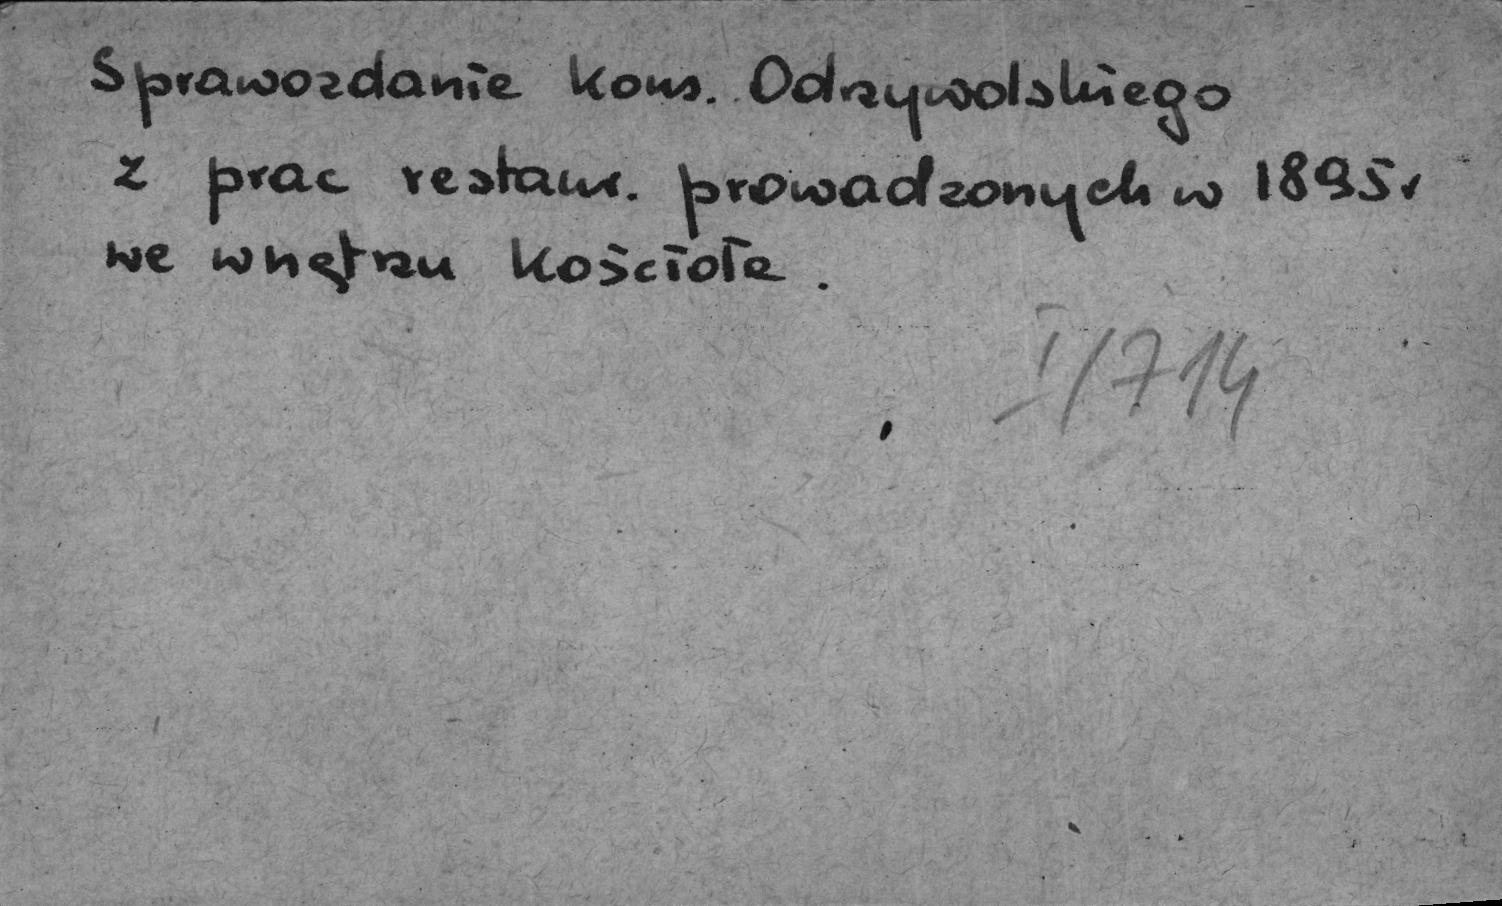 Sprawozdanie kons. Odrzywolskiego
z prac restaur. prowadzonych w 1895 r
we wnętrzu kościoła.
I/714